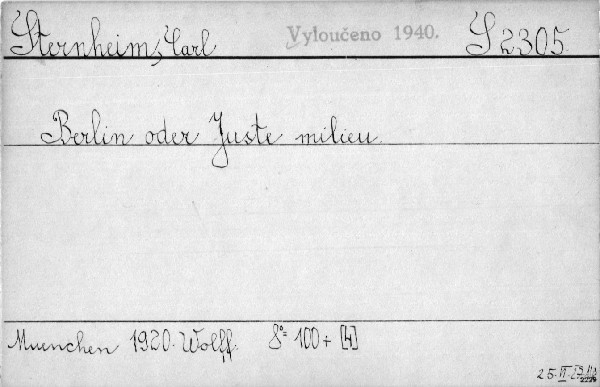 Sternheim, Carl Vyloučeno 1940. S 2305.
Berlin oder Juste milieu.
Muenchen 1920. Wolff. 8° 100 + [4]